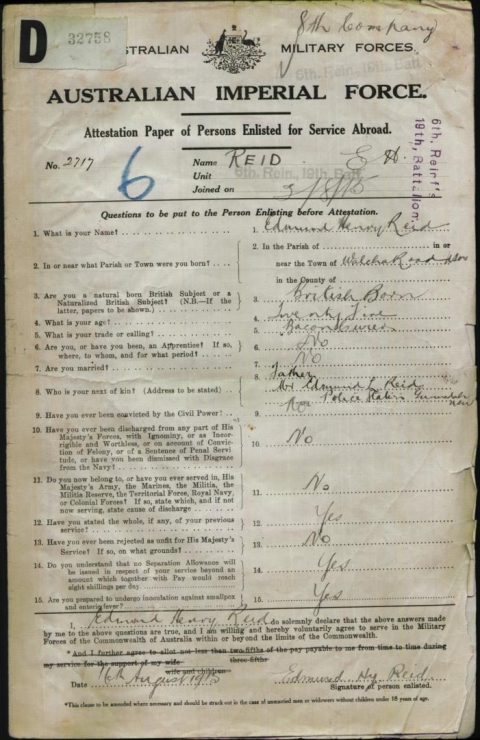 D 32758
8th Company
AUSTRALIAN MILITARY FORCES.
6th. Rein, 19th. Batt
AUSTRALIAN IMPERIAL FORCE.
Attestation Paper of Persons Enlisted for Service Abroad.
6th. Reinf's
19th. Battalion
No. 2717
6
Name REID. E H.
Unit 6th. Rein, 19th. Batt.
Joined on 3/8/15
Questions to be put to the Person Enlisting before Attestation.
1. What is your Name?
1. Edmund Henry Reid
2. In or near what Parish or Town were you born?
2. In the Parish of in or
near the Town of Walcha Road NSW
in the County of
3. Are you a natural born British Subject or a
Naturalized British Subject? (N.B.—If the
latter, papers to be shown.)
3. British Born
4. What is your age?
4.
5. What is your trade or calling?
5. Bacon Curer
6. Are you, or have you been, an Apprentice? If so,
where, to whom, and for what period?
6. No
7. Are you married?
7. No
8. Who is your next of kin? (Address to be stated)
8. Father
Mr Edmund L Reid
Police Station Gunnedah
NSW
9. Have you ever been convicted by the Civil Power?
9. No
10. Have you ever been discharged from any part of His
Majesty's Forces, with Ignominy, or as Incor-
rigible and Worthless, or on account of Convic-
tion of Felony, or of a Sentence of Penal Servi-
tude, or have you been Dismissed with Disgrace
from the Navy?
10. No
11. Do you now belong to, or have you ever served in, His
Majesty's Army, the Marines, the Militia, the
Militia Reserve, the Territorial Force, Royal Navy,
or Colonial Forces? If so, state which, and if not
now serving, state cause of discharge
11. No
12. Have you stated the whole, if any, of your previous
service?
12. Yes
13. Have you ever been rejected as unfit for His Majesty's
Service? If so, on what grounds?
13. No
14. Do you understand that no Separation Allowance will
be issued in respect of your service beyond an
amount which together with Pay would reach
eight shillings per day
14. Yes
15. Are you prepared to undergo inoculation against smallpox
and enteric fever?
15. Yes
I, Edmund Henry Reid do solemnly declare that the above answers made
by me to the above questions are true, and I am willing and hereby voluntarily agree to serve in the Military
Forces of the Commonwealth of Australia within or beyond the limits of the Commonwealth.
* And I further agree to allot not less than two-fifths of the pay payable to me from time to time during
three-fifths
my service for the support of my wife
wife and children
Date 16th August 1915
Edmund Hy Reid
Signature of person enlisted.
*This clause to be amended where necessary and should be struck out in the case of unmarried men or widowers without children under 18 years of age.